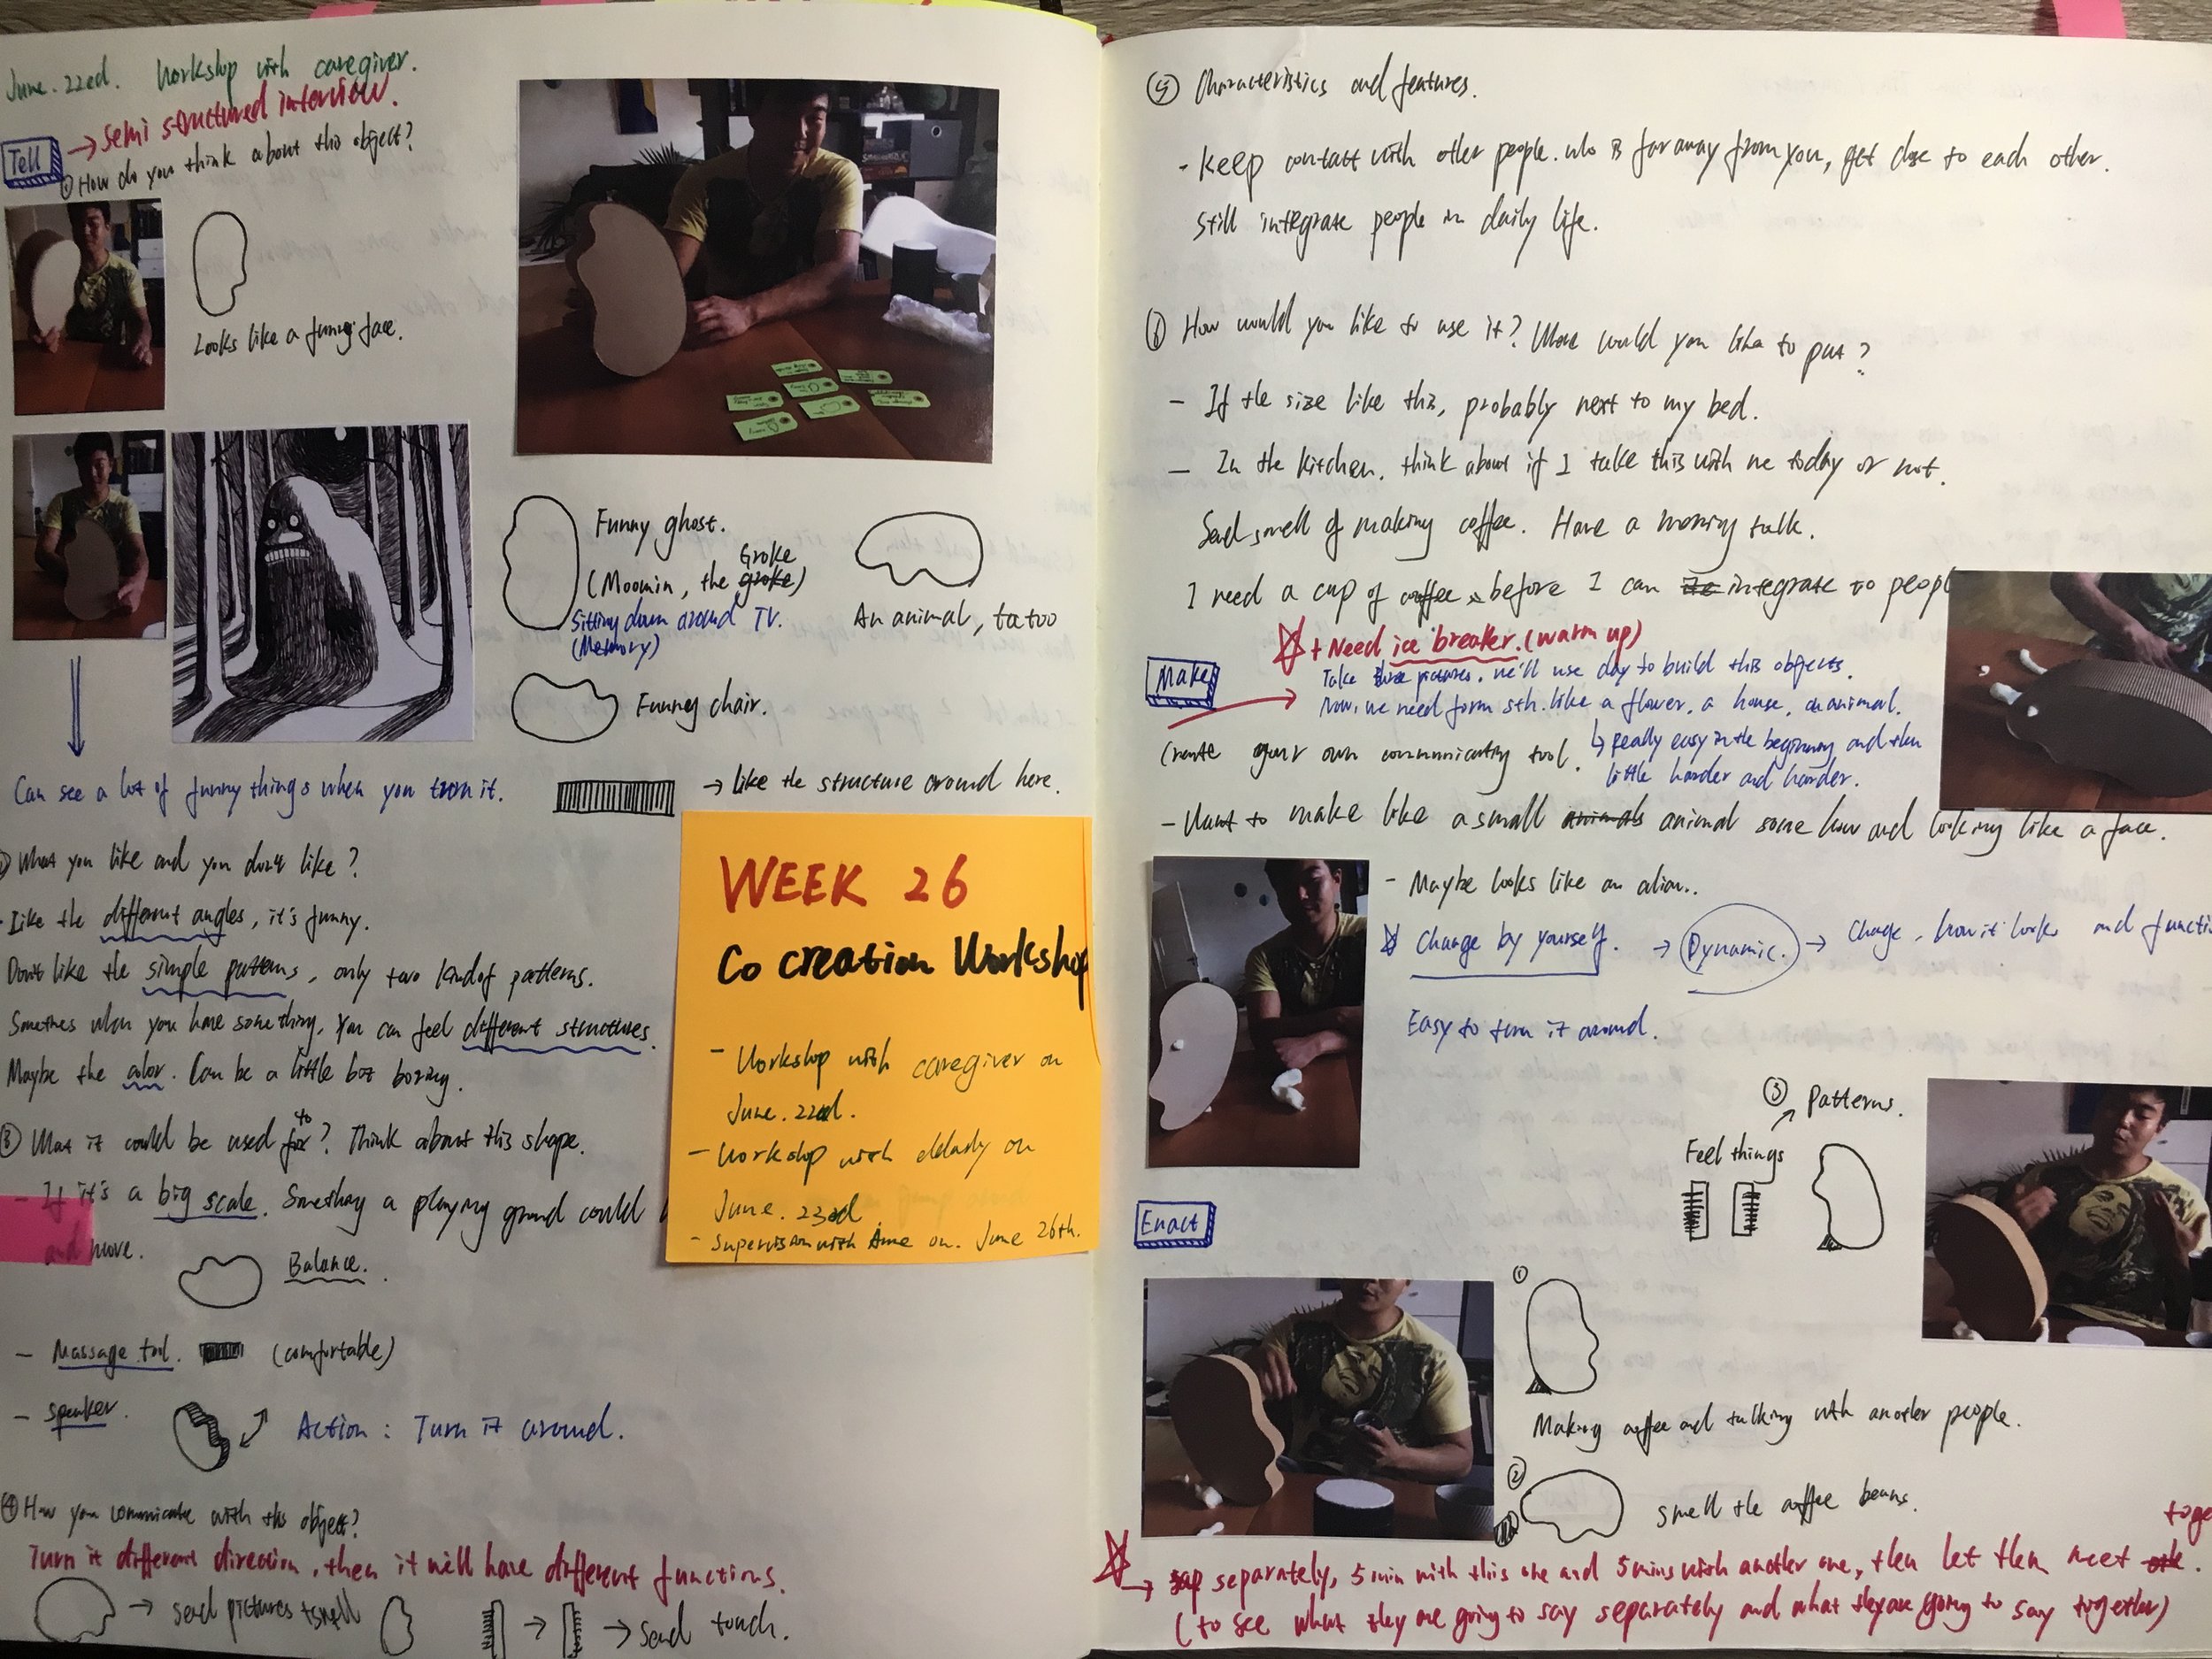 June. 22ed. Workshop with caregiver.
Tell → Semi structured interview.
① How do you think about this object?
Looks like a funny face.
Funny ghost.
Groke
(Moomin, the groke)
Sitting down around TV.
(Memory)
An animal, tatoo
Funny chair.
Can see a lot of funny things when you turn it.
→ like the structure around here.
What you like and you don't like?
- Like the different angles, it's funny.
Don't like the simple patterns, only two kind of patterns.
Sometimes when you have something, you can feel different structures.
Maybe the color. Can be a little bit boring.
③ What it could be used for to? Think about this shape.
- If it's a big scale. Something a playing ground could
and move.
Balance.
- Massage tool. (comfortable)
- speaker.
Action: Turn it around.
④ How you communicate with this object?
Turn it different direction, then it will have different functions.
→ send pictures + smell
→ → send touch.
WEEK 26
Co creation Workshop
- Workshop with caregiver on
June. 22ed.
- Workshop with eldely on
June. 23ed.
- Supervision with Anne on. June 26th.
⑤ Characteristics and features.
- Keep contact with other people. who is far away from you, get close to each other.
still integrate people in daily life.
⑥ How would you like to use it? Where would you like to put?
- If the size like this, probably next to my bed.
- In the kitchen. think about if I take this with me today or not.
Send smell of making coffee. Have a morning talk.
I need a cup of coffee before I can integrate to peopl
☆ + Need ice breaker. (warm up)
Make
Take three pictures. we'll use clay to build this objects.
Now, we need form sth. like a flower. a house, an animal.
↳ Really easy in the beginning and then
little harder and harder.
Create your own communicating tool.
- Want to make like a small animals animal some how and looking like a face.
- Maybe looks like an alian..
☆ Change by yourself. → Dynamic. → Change, how it looks and functi
Easy to turn it around.
③ Patterns.
Feel things
Enact
①
Making coffee and talking with another people.
②
smell the coffee beans.
toge
☆ → separately, 5 min with this one and 5 mins with another one, then let them meet.
(to see what they are going to say separately and what they are going to say together)